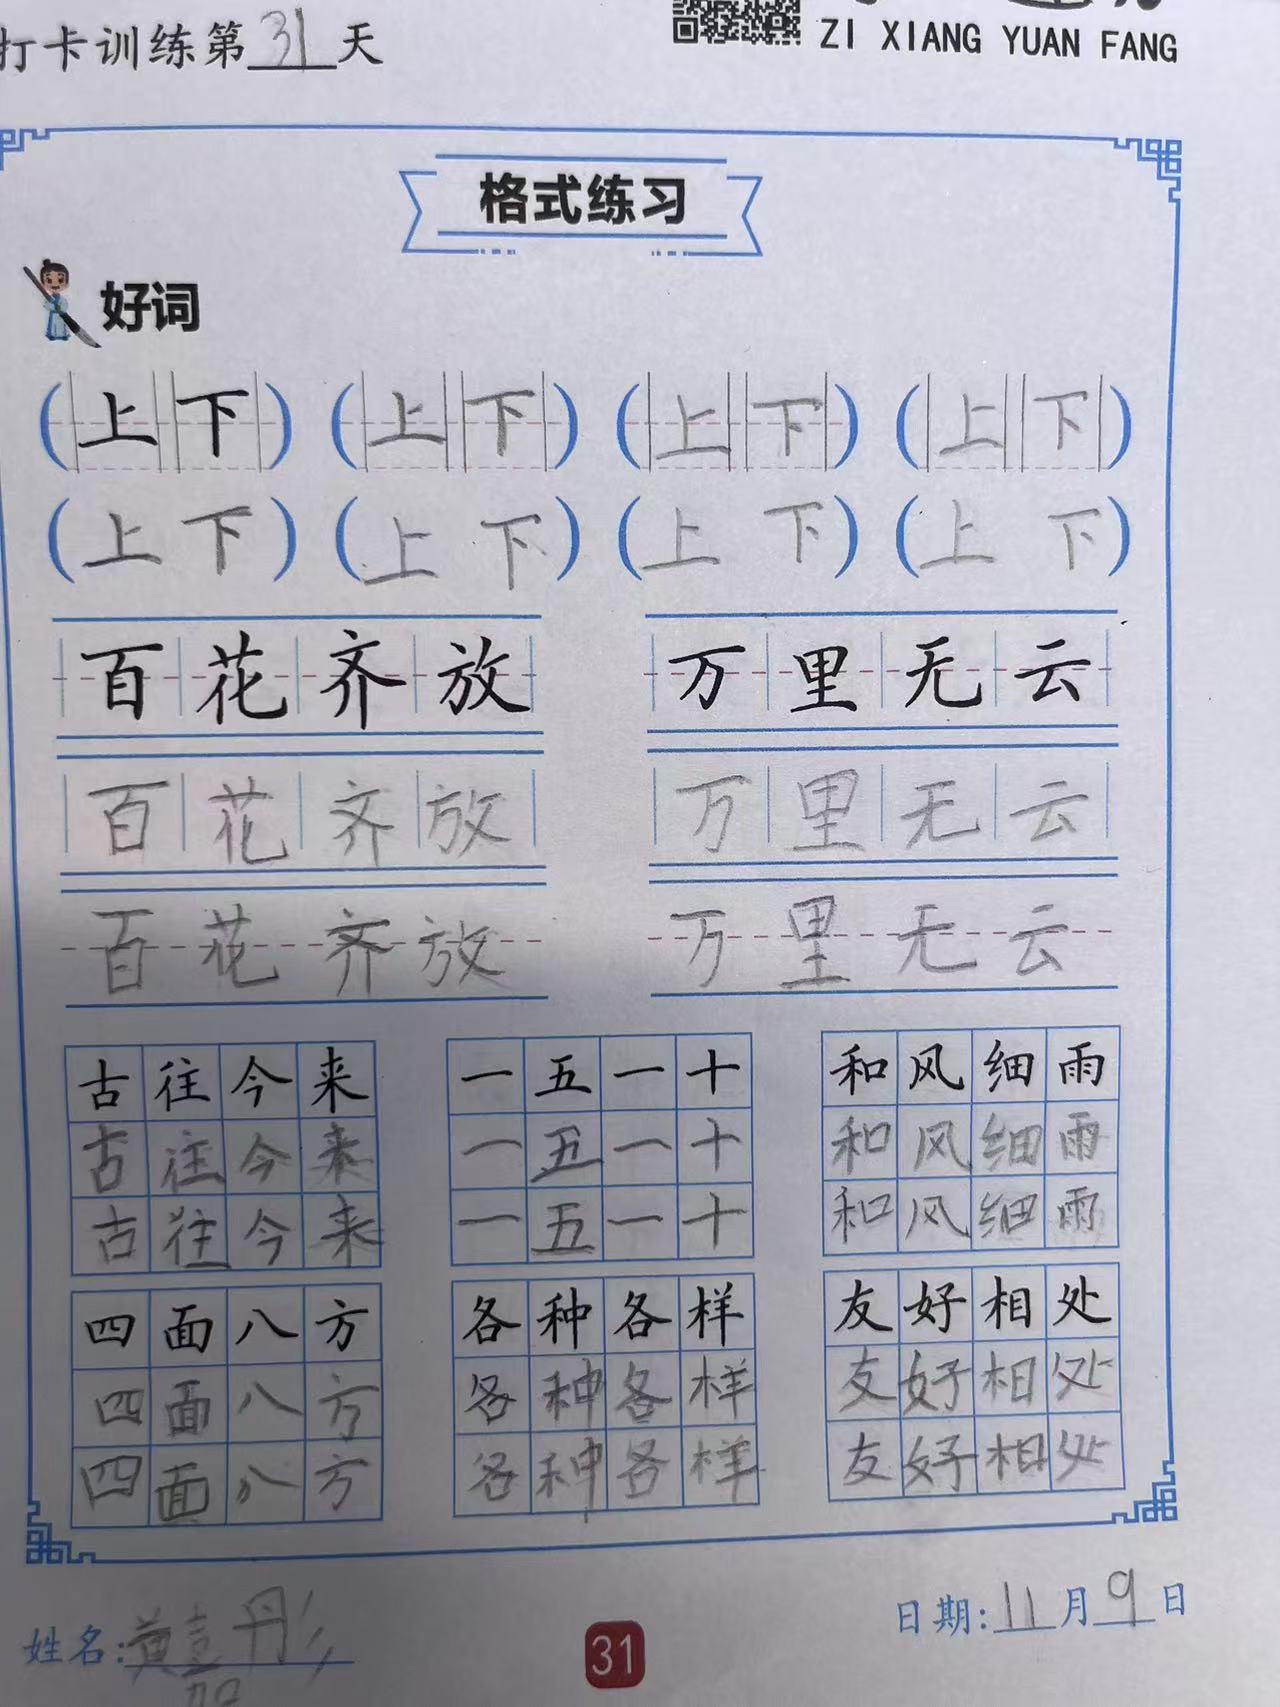 打卡训练第31天
ZI XIANG YUAN FANG
格式练习
好词
(上下) (上下) (上下) (上下)
(上下) (上下) (上下) (上下)
百花齐放 万里无云
百花齐放 万里无云
百花齐放 万里无云
古往今来 一五一十 和风细雨
古往今来 一五一十 和风细雨
古往今来 一五一十 和风细雨
四面八方 各种各样 友好相处
四面八方 各种各样 友好相处
四面八方 各种各样 友好相处
姓名:黄嘉彤 日期:11月9日
31